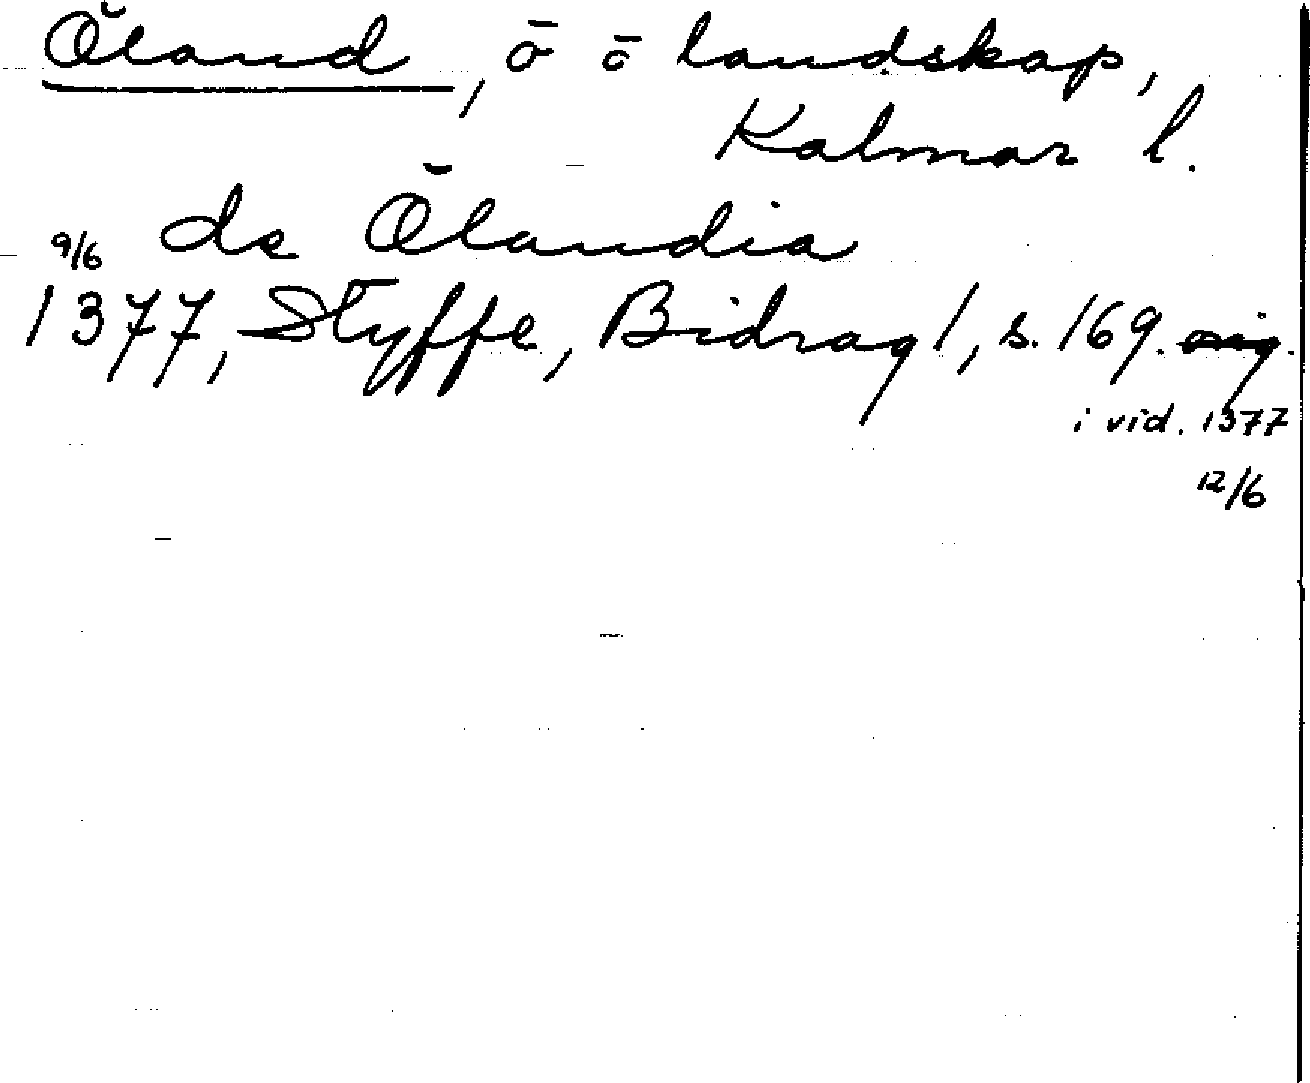 Öland, ö ö landskap,
Kalmar l.
de Ölandia
9/6
1377, Styffe, Bidrag 1, s. 169. orig.
i vid. 1377
12/6